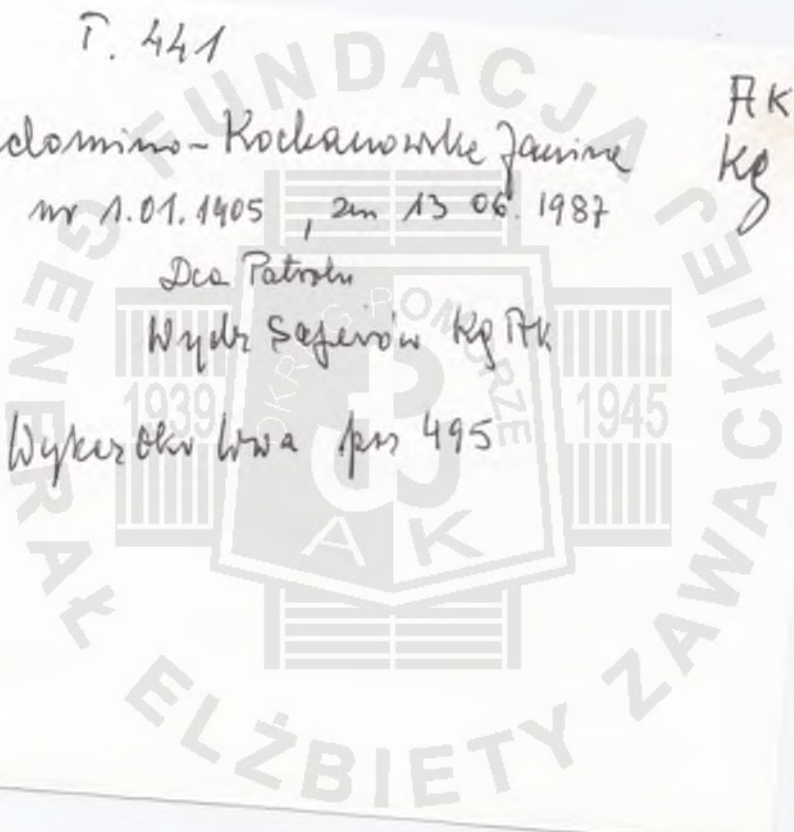 T. 441
AK
domino-Kochanowska Janina
Kg
ur 1.01.1905, zm 13 06. 1987
Dca Patrolu
Wydz Saperów Kg AK
pos 495
FUNDACJA
GENERAŁ ELŻBIETY ZAWACKIEJ
OKRĘG POMORZE
1939
1945
AK